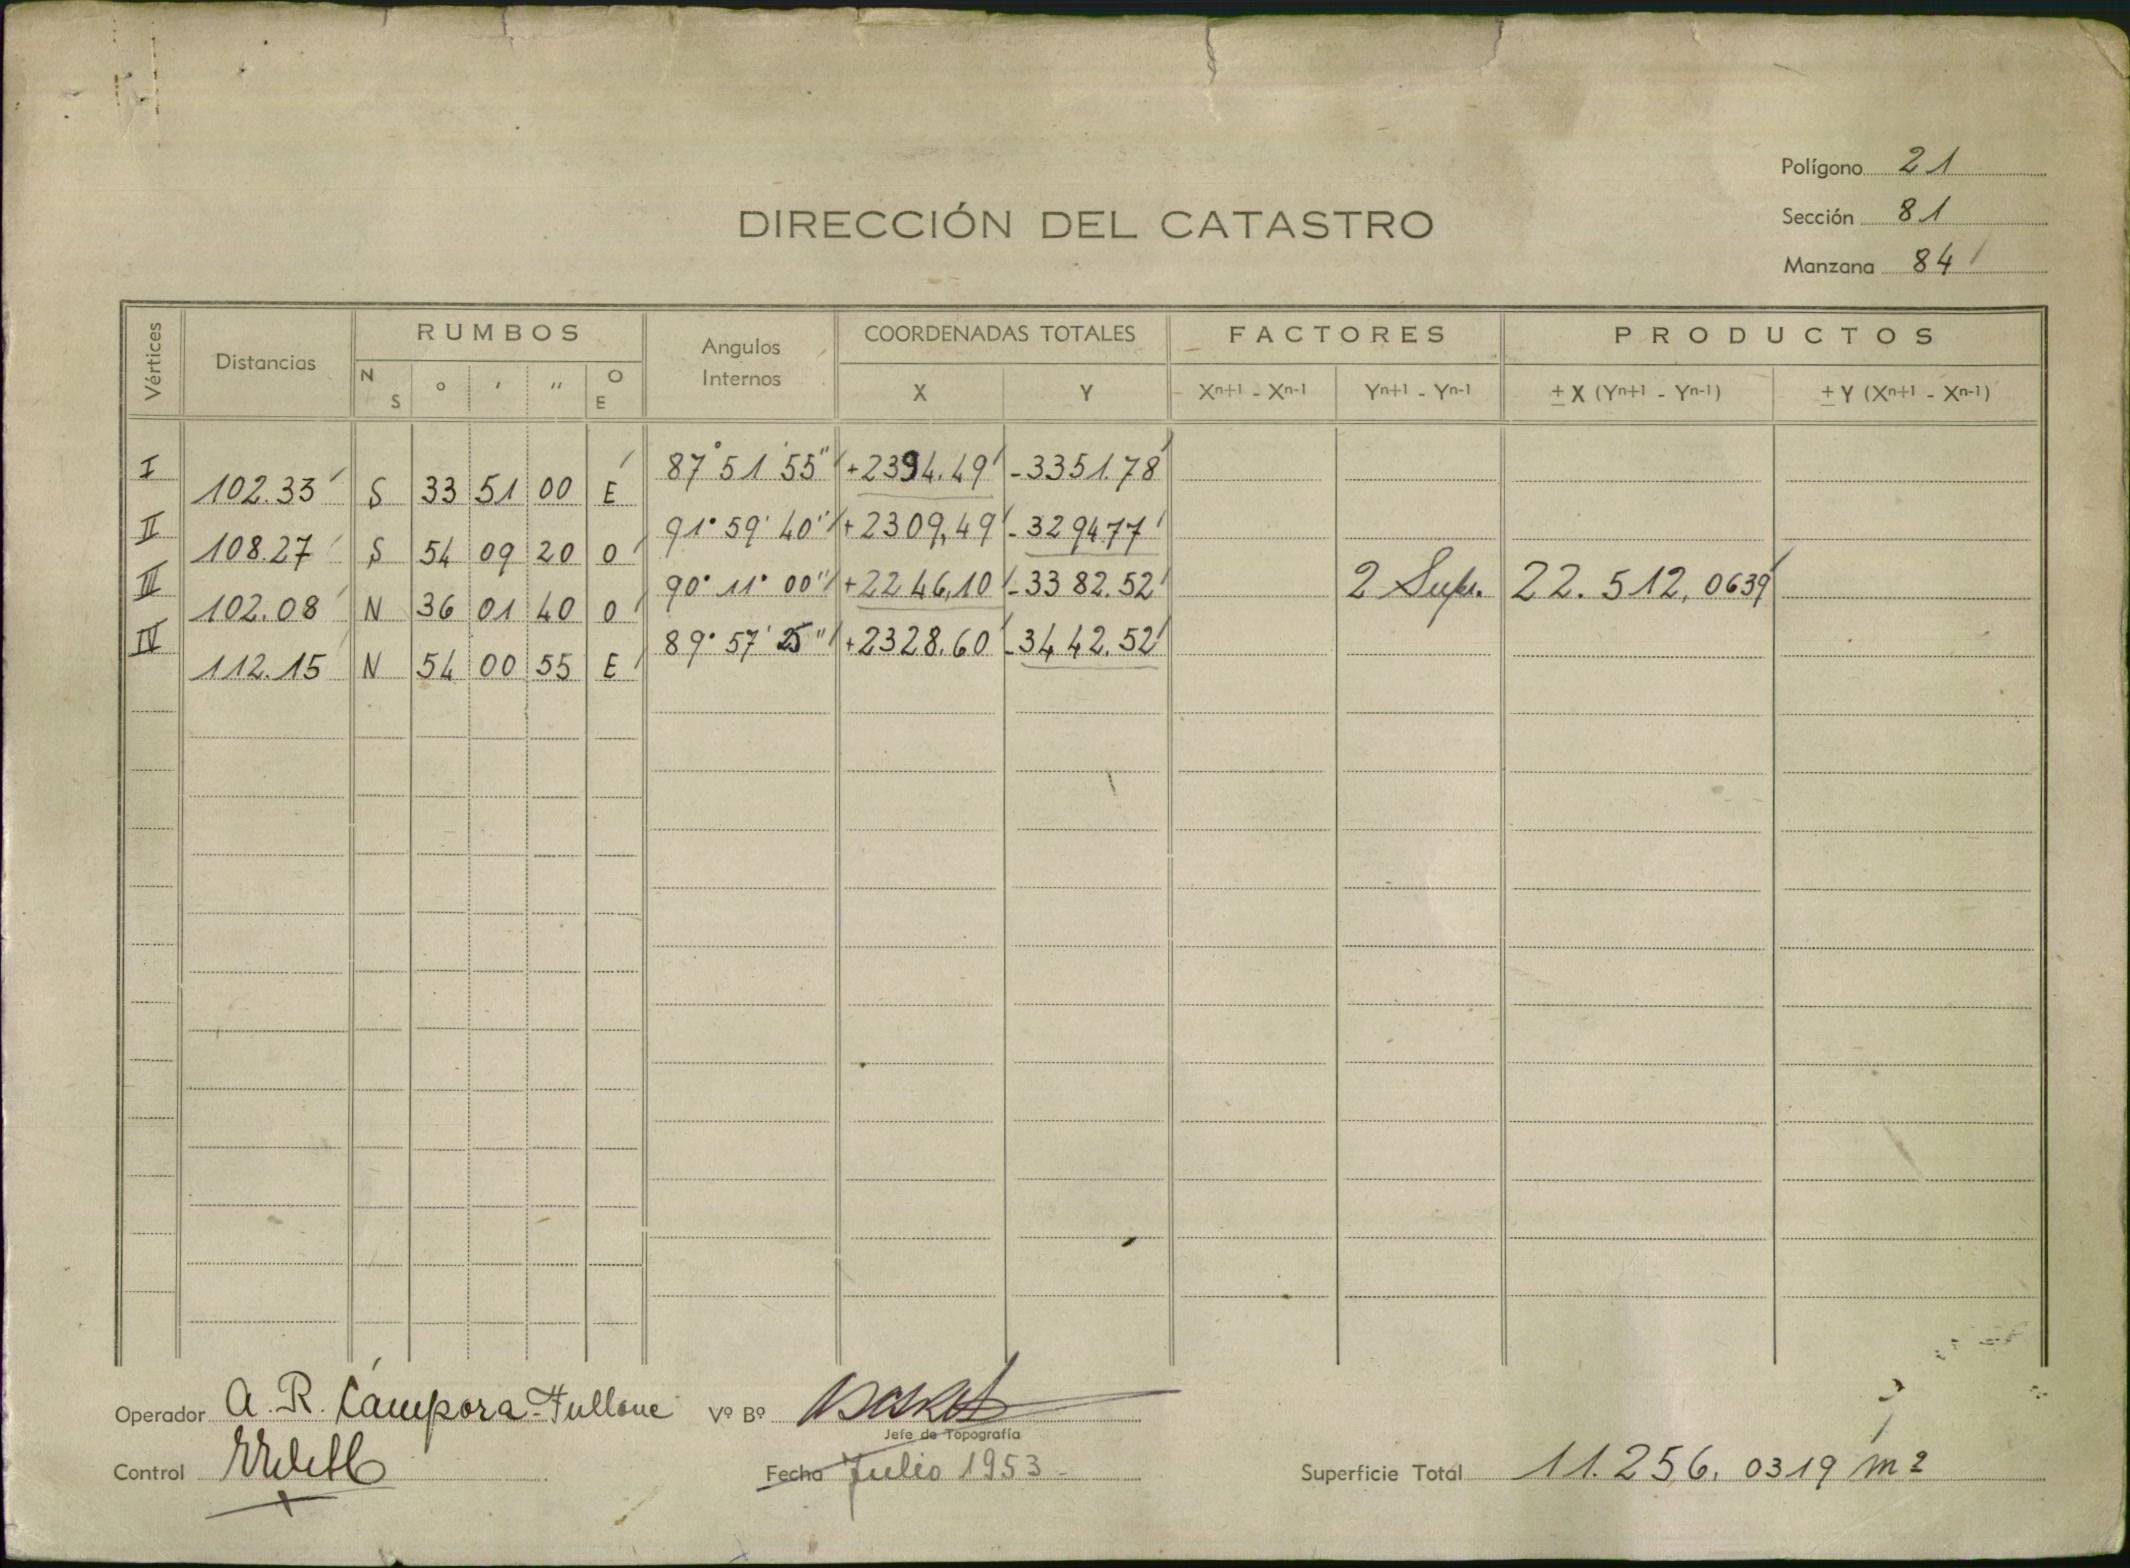 Polígono 21
DIRECCIÓN DEL CATASTRO
Sección 81
Manzana 84
Vértices Distancias RUMBOS Angulos Internos COORDENADAS TOTALES FACTORES PRODUCTOS
N S ° ' '' O E X Y Xn+1 - Xn-1 Yn+1 - Yn-1 ± X (Yn+1 - Yn-1) ± Y (Xn+1 - Xn-1)
I 87° 51' 55'' +2394.49 -3351.78
102.33 S 33 51 00 E
II 91° 59' 40'' +2309,49 -3294.77
108.27 S 54 09 20 O
III 90° 11' 00'' +2246,10 -3382.52 2 Sup. 22.512,0639
102.08 N 36 01 40 O
IV 89° 57' 25'' +2328.60 -3442.52
112.15 N 54 00 55 E
Operador A. R. Cámpora-Fullone Vº Bº
Jefe de Topografía
Control Fecha Julio 1953 Superficie Total 11.256,0319 m2